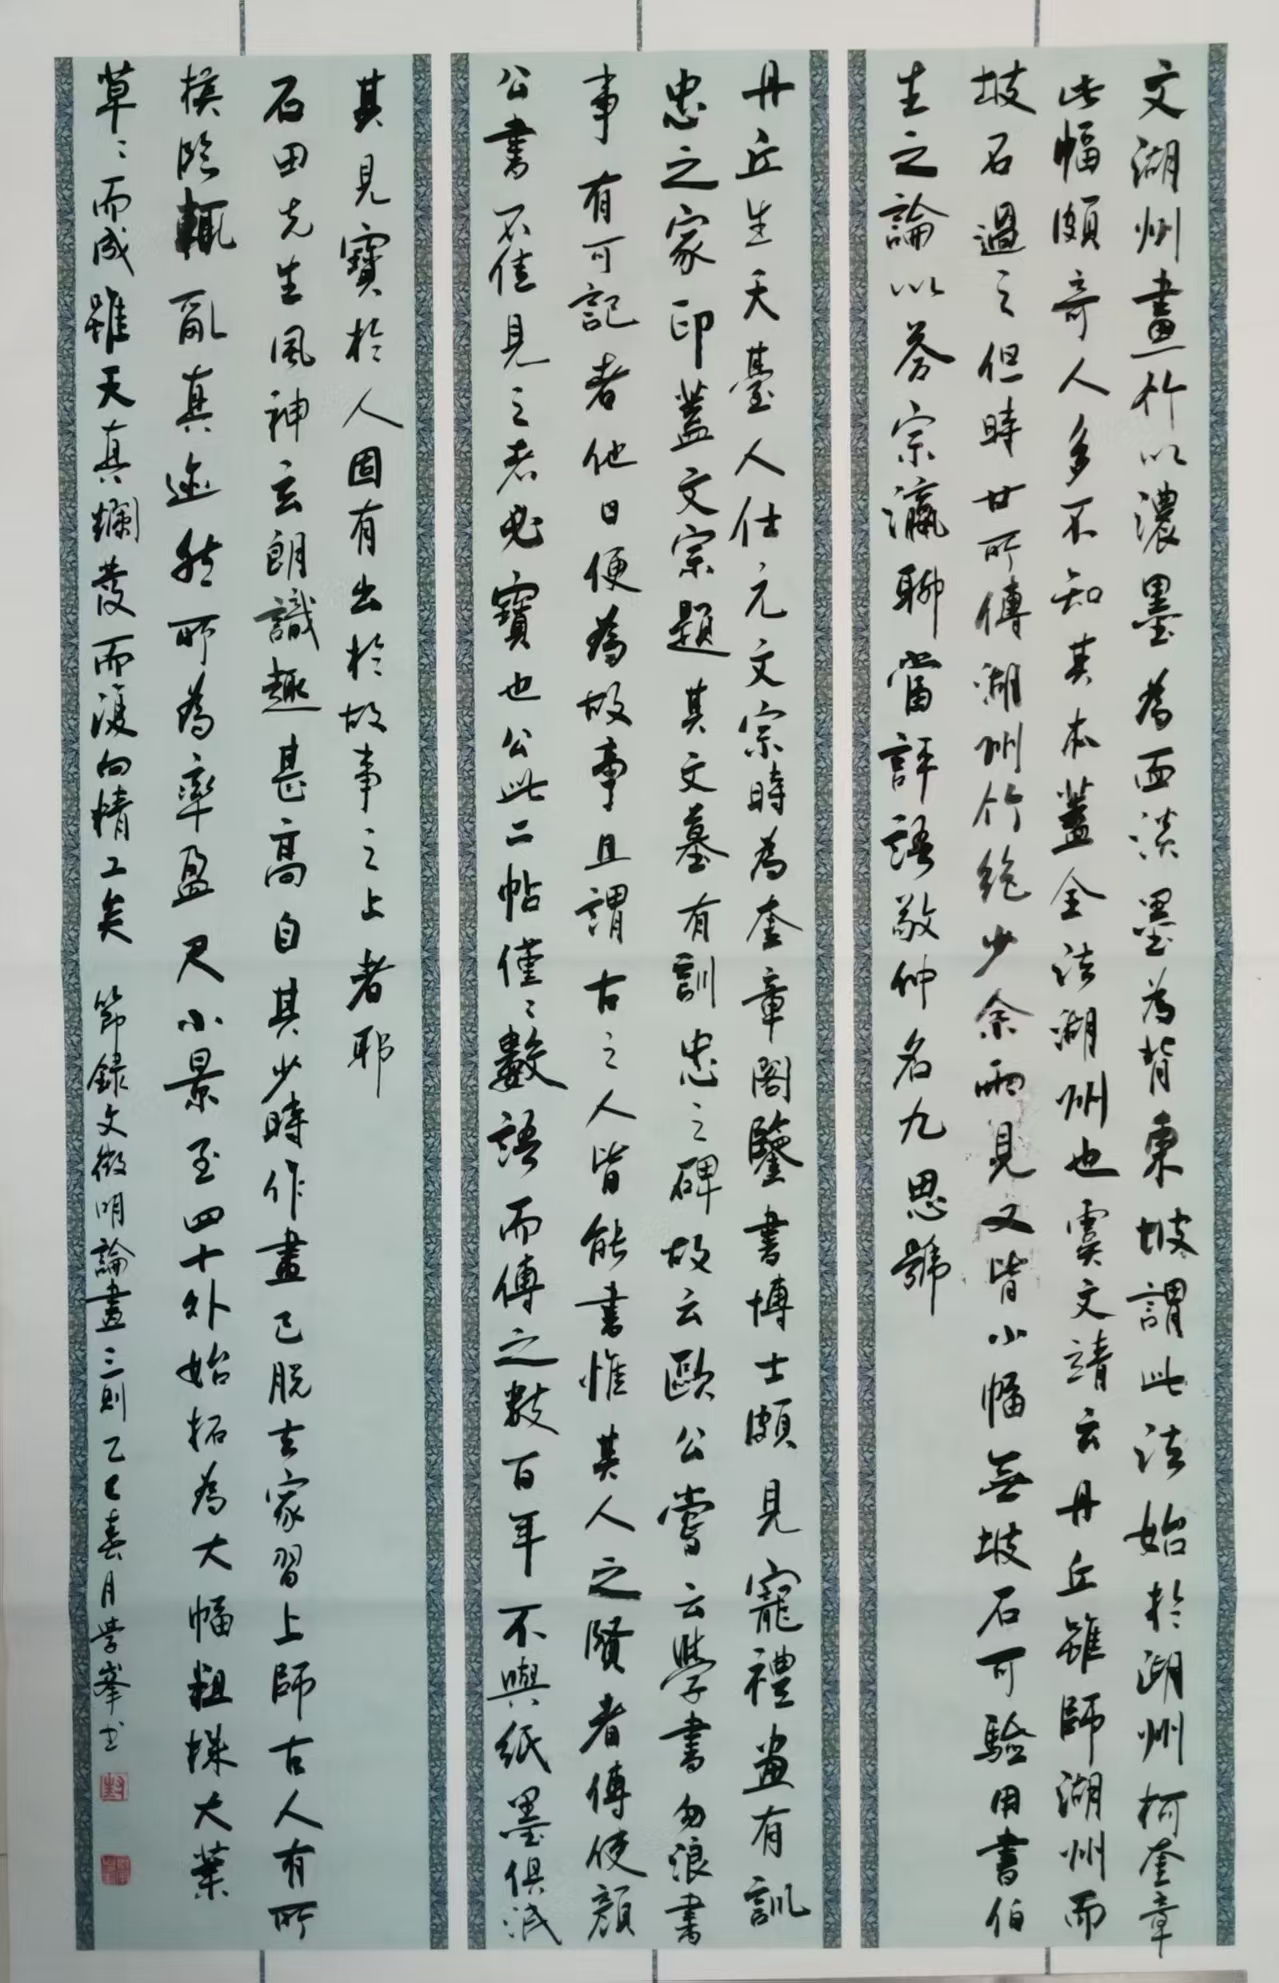 文湖州畫竹以濃墨為面淡墨為背東坡謂此法始於湖州柯奎章
此幅頗奇人多不知其本蓋全法湖州也虞文靖云丹丘雖師湖州而
坡石過之但時世所傳湖州竹絶少余兩見又皆小幅無坡石可驗用書伯
生之論以荅宗瀛聊當評語敬仲名九思號
丹丘生天臺人仕元文宗時為奎章閣鑒書博士頗見寵禮畫有訓
忠之家印蓋文宗題其父墓有訓忠之碑故云歐公嘗云學書勿浪書
事有可記者他日便為故事且謂古之人皆能書惟其人之賢者傳使顏
公書不佳見之者必寶也公此二帖僅〻數語而傳之數百年不與紙墨俱泯
其見寶於人固有出於故事之上者耶
石田先生風神玄朗識趣甚高自其少時作畫已脫去家習上師古人有所
模臨輒亂真迹然所為率盈尺小景至四十外始拓為大幅粗株大葉
草〻而成雖天真爛發而復向精工矣 節録文徵明論畫三則 乙巳春月學峯书